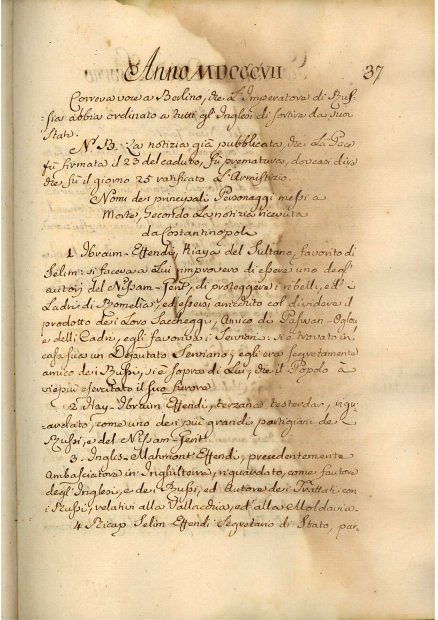 Anno MDCCCVII 37
Correva voce a Berlino, che L'Imperatore di Rus,
:sia abbia ordinato a tutti gl'Inglesi di sortire da suoi
Stati.
N.B. La notizia già pubblicata, che La Pace
fù firmata il 23 del caduto, fù prematura, doveasi dire
che fù il giorno 25 ratificato L'Armistizio.
Nomi dei principali Personaggi messi a
Morte, Secondo La notizia ricevuta
da Costantinopoli
1. Ibraim-Effendi, Kiaya del Sultano, favorito di
Selim: si faceva a Lui improvero di essere uno degl'
autori del Nissam-Gerit, di proteggere i ribelli, ed i
Ladri di Romelia, ed essersi arricchito col dividere il
prodotto dei Loro Saccheggi, Amico di Paswan-Oglou,
e delli Cadri, egli favoriva i Serviani: si è trovato in
casa sua un Deputato Serviano; egli era segretamente
amico dei Russi, si è sopra di Lui, che il Popolo à
viepiù esercitato il suo furore
2. Hay-Ibraim Effendi, terzana testerdar, rigu,
:ardato, come uno dei più grandi partigiani dei
Russi, e del Nissam-Gerit.
3. Inglese Mahmont Effendi, precedentemente
Ambasciatore in Inghilterra, riguardato, come fautore
degl'Inglesi, e dei Russi, ed autore dei Trattati con
i Russi, relativi alla Vallacchia, ed alla Moldavia.
4. Ricap Selim Effendi Segretario di Stato, par,